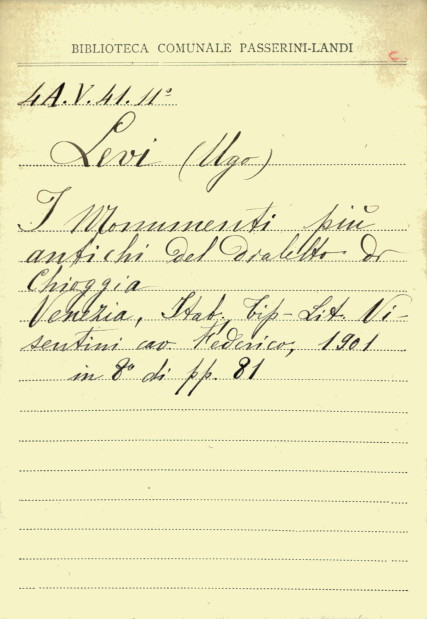 BIBLIOTECA COMUNALE PASSERINI-LANDI
4A.V.41.11°
Levi (Ugo)
I Monumenti più
antichi del dialetto di
Chioggia
Venezia, Stab. Tip-Lit. Vi-
sentini cav. Federico, 1901
in 8° di pp. 81